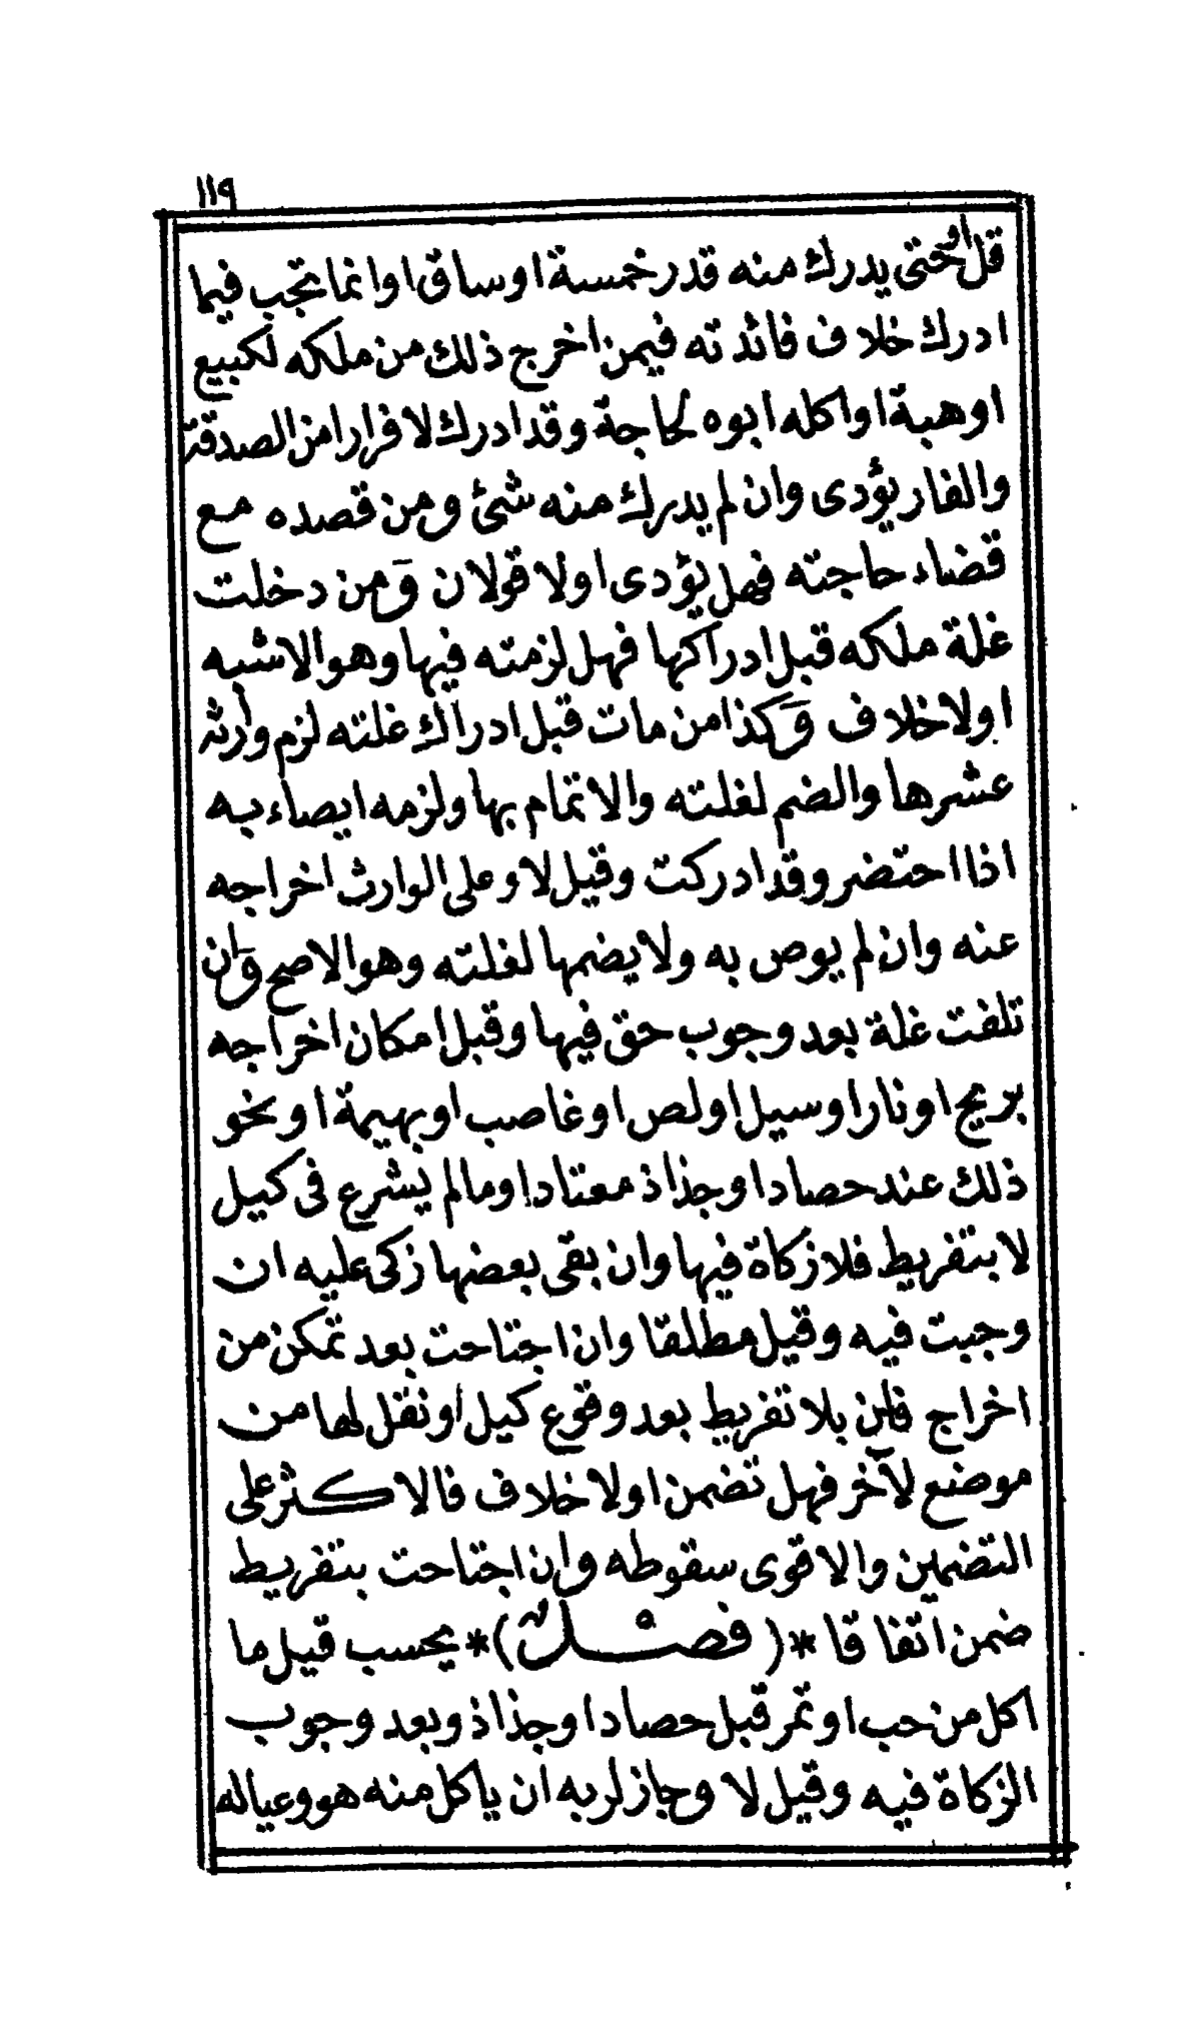 ١١٩
قل او حتى يدرك منه قدر خمسة اوساق او انما تجب فيما
ادرك خلاف فائدته فيمن اخرج ذلك من ملكه لكبيع
اوهبة او اكله ابوه لحاجة وقد ادرك لا فرارا من الصدقة
والفار يؤدى وان لم يدرك منه شئ ومن قصده مع
قضاء حاجته فهل يؤدى اولا قولان وَمن دخلت
غلة ملكه قبل ادراكها فهل لزمته فيها وهو الاشبه
اولا خلاف وَكذا من مات قبل ادراك غلته لزم وارثه
عشرها والضم لغلته والاتمام بها ولزمه ايصاء به
اذا احتضر وقد ادركت وقيل لا وعلى الوارث اخراجه
عنه وان لم يوص به ولا يضمها لغلته وهو الاصح وَان
تلفت غلة بعد وجوب حق فيها وقبل امكان اخراجه
بريح او نار او سيل او لص او غاصب او بهيمة او نحو
ذلك عند حصاد او جذاذ معتاد او ما لم يشرع فى كيل
لا بتفريط فلا زكاة فيها وان بقى بعضها زكى عليه ان
وجبت فيه وقيل مطلقا وان اجتاحت بعد تمكن من
اخراج فان بلا تفريط بعد وقوع كيل او نقل لها من
موضع لآخر فهل تضمن اولا خلاف فالاكثر على
التضمين والاقوى سقوطه وان اجتاحت بتفريط
ضمن اتفاقا *( فصل )* يحسب قيل ما
اكل من حب او تمر قبل حصاد او جذاذ وبعد وجوب
الزكاة فيه وقيل لا وجاز لربه ان ياكل منه هو وعياله